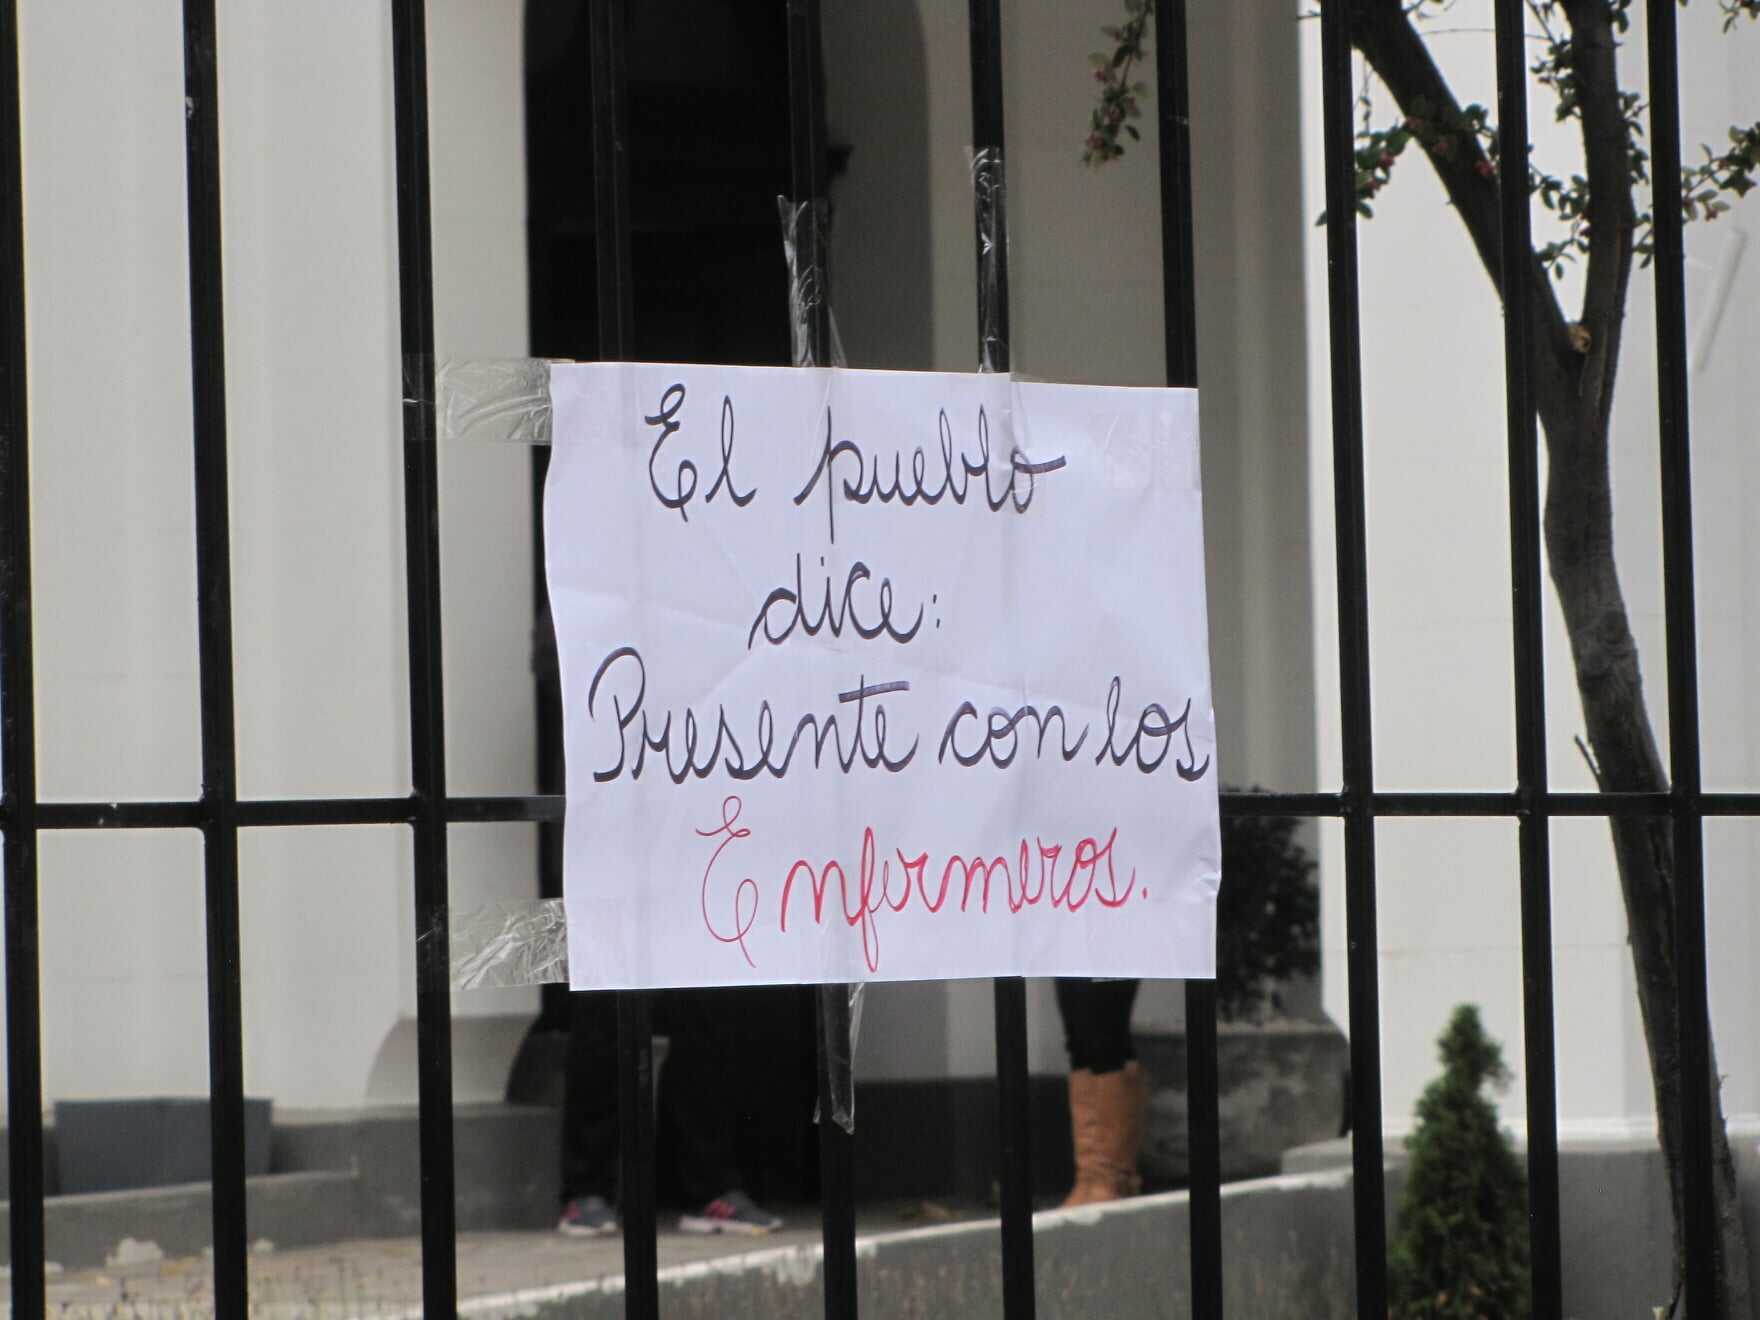 El pueblo
dice:
Presente con los
Enfermeros.